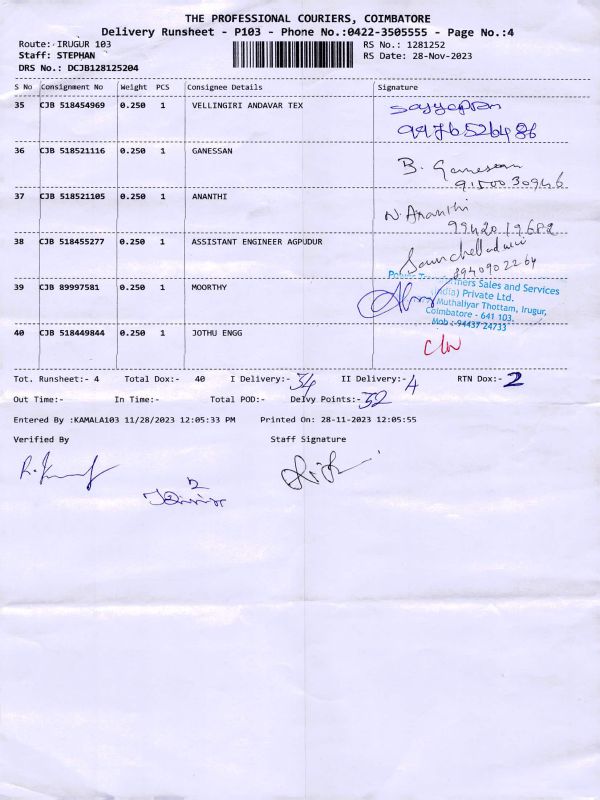 THE PROFESSIONAL COURIERS, COIMBATORE
Delivery Runsheet - P103 - Phone No.:0422-3505555 - Page No.:4
Route: IRUGUR 103 RS No.: 1281252
Staff: STEPHAN RS Date: 28-Nov-2023
DRS No.: DCJB128125204
S No Consignment No Weight PCS Consignee Details Signature
35 CJB 518454969 0.250 1 VELLINGIRI ANDAVAR TEX
9976526486
36 CJB 518521116 0.250 1 GANESSAN B. Ganessan
9150030946
37 CJB 518521105 0.250 1 ANANTHI N. Ananthi
9942019682
38 CJB 518455277 0.250 1 ASSISTANT ENGINEER AGPUDUR
8940902264
39 CJB 89997581 0.250 1 MOORTHY
Sales and Services
(India) Private Ltd.
Muthaliyar Thottam, Irugur,
Coimbatore - 641 103.
Mob : 94437 24733
40 CJB 518449844 0.250 1 JOTHU ENGG
Tot. Runsheet:- 4 Total Dox:- 40 I Delivery:- 34 II Delivery:- 4 RTN Dox:- 2
Out Time:- In Time:- Total POD:- Delvy Points:- 32
Entered By :KAMALA103 11/28/2023 12:05:33 PM Printed On: 28-11-2023 12:05:55
Verified By Staff Signature